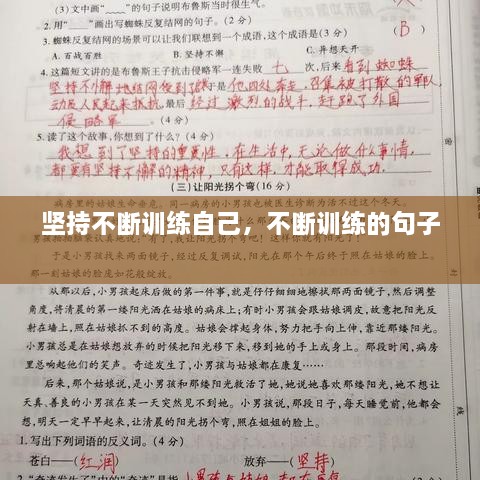 (3)文中"﹏﹏"的句子说明布鲁斯当时很生气。
2.用"——"画出写蜘蛛反复结网的句子。(2分)
3.蜘蛛反复结网的场景可以让我们联想到一个成语,这个成语是( B )
A.百战百胜 B.坚持不懈 C.异想天开
4.这篇短文讲的是布鲁斯王子抗击侵略军一连失败 七 次,后来 看到蜘蛛
坚持不懈地结网
他四处奔走,召集被打散的军队,
动员人民起来抵抗,最后 经过激烈的战斗,赶跑了外国
侵略军。(4分)
5.读了这个故事,你想到了什么?(4分)
我想到了坚持的重要性,在生活中,无论做什么事情,
都要有坚持不懈的精神,只有这样,才能取得成功.
(三)让阳光拐个弯(16分)
坚持不断训练自己,不断训练的句子
于是小男孩找来两面镜子,经过反复调试,阳光在那个午后终于照在姑娘的
床上,一直到姑娘的脸庞如花般绽放。
从那以后,小男孩起床后做的第一件事,就是仔仔细细地擦拭那两面镜子,然后调整
角度,将清晨的第一缕阳光洒在姑娘的病床上;有时小男孩会跟姑娘调皮,故意把阳光反
射在墙上,照在姑娘抓不到的高度。姑娘会撑起身体,努力把手向上伸,靠近那缕阳光。
小男孩总是在姑娘想放弃的时候把阳光移下来,移到她的手上或身上。那段时间,病房
里总会响起他们的笑声。奇迹发生了,小男孩与姑娘都在康复……
后来,那个姑娘说,是小男孩和那缕阳光救活了她,她说她喜欢那缕阳光,她不想让
天真、善良的小男孩在某一天突然见不到她。小男孩说,那段日子,每天睡觉前,他都会
想,明天一定早早起来,让清晨的阳光拐个弯,照在姐姐的脸上。
1.写出下列词语的反义词。(4分)
苍白——( 红润 ) 放弃——( 坚持 )
2."奇迹发生了"中的"奇迹"是指